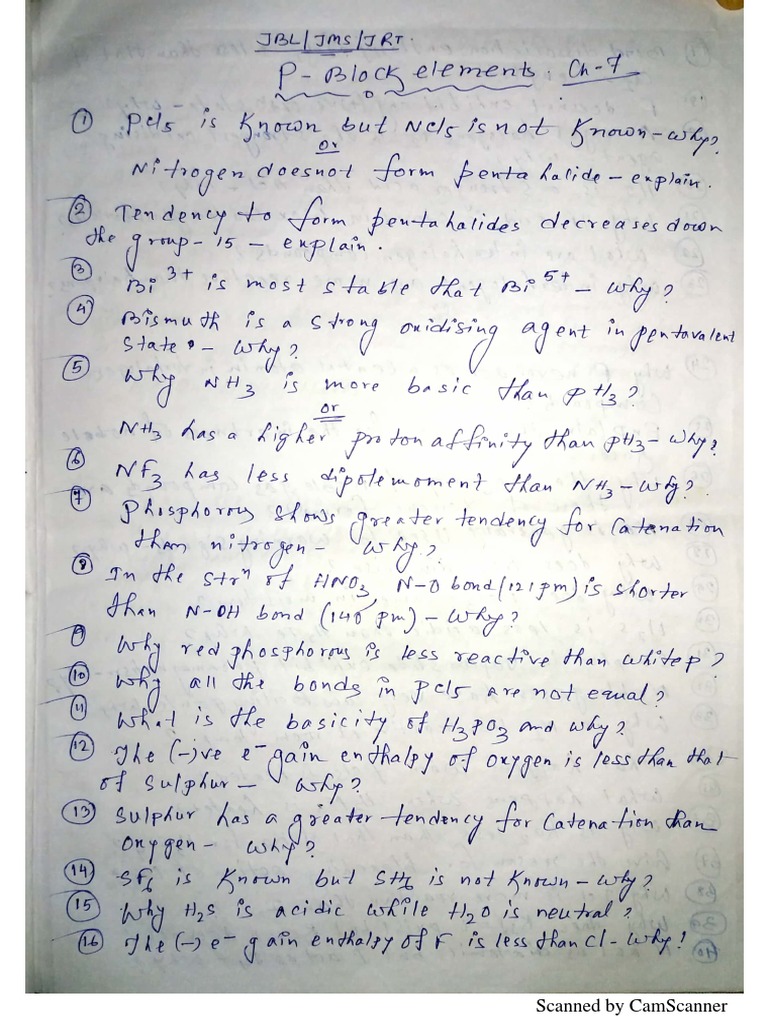 JBL/JMS/JRT.
P-Block elements. Ch-7
① PCl5 is known but NCl5 is not known-why?
or
Nitrogen doesnot form pentahalide-explain.
② Tendency to form pentahalides decreases down
the group-15-explain.
③ Bi3+ is most stable that Bi5+-why?
④ Bismuth is a strong oxidising agent in pentavalent
state.-Why?
⑤ Why NH3 is more basic than PH3?
or
NH3 has a higher proton affinity than PH3-why?
⑥ NF3 has less dipolemoment than NH3-why?
⑦ Phosphorous shows greater tendency for Catenation
than nitrogen-why?
⑧ In the strn of HNO3, N-O bond (121pm) is shorter
than N-OH bond (140 pm)-why?
⑨ Why red phosphorous is less reactive than white p?
⑩ Why all the bonds in PCl5 are not equal?
⑪ What is the basicity of H3PO3 and why?
⑫ The (-)ve e- gain enthalpy of oxygen is less than that
of sulphur-why?
⑬ Sulphur has a greater tendency for Catenation than
oxygen-why?
⑭ SF6 is known but SH6 is not known-why?
⑮ Why H2S is acidic while H2O is neutral?
⑯ The (-) e- gain enthalpy of F is less than Cl-why!
Scanned by CamScanner